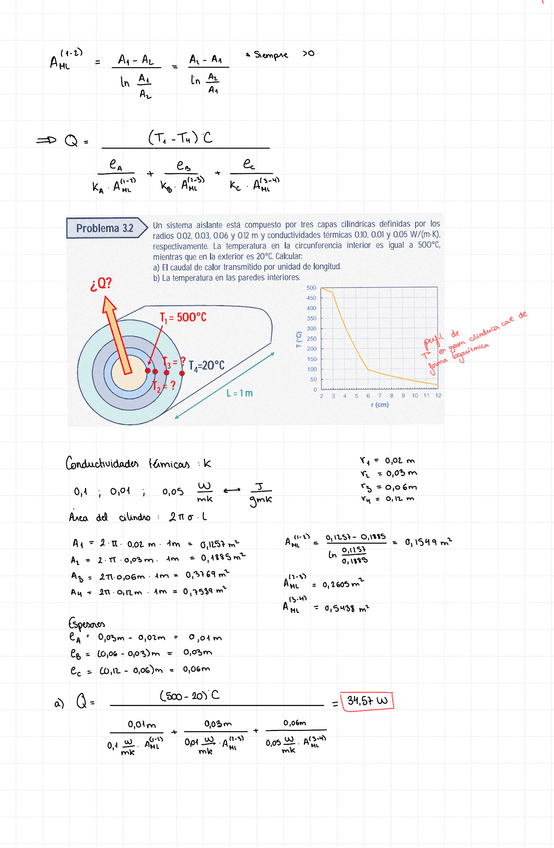 A_ML^(1-2) = (A₁ - A₂) / (ln A₁/A₂) = (A₂ - A₁) / (ln A₂/A₁) * Siempre >0
⇒ Q = (T₁ - T₄) C / (e_A / (k_A · A_ML^(1-2)) + e_B / (k_B · A_ML^(2-3)) + e_C / (k_C · A_ML^(3-4)))
Problema 3.2
Un sistema aislante está compuesto por tres capas cilíndricas definidas por los
radios 0.02, 0.03, 0.06 y 0.12 m y conductividades térmicas 0.10, 0.01 y 0.05 W/(m·K),
respectivamente. La temperatura en la circunferencia interior es igual a 500°C,
mientras que en la exterior es 20°C. Calcular:
a) El caudal de calor transmitido por unidad de longitud.
b) La temperatura en las paredes interiores.
¿Q?
T₁ = 500°C
T₃ = ?
T₄=20°C
T₂ = ?
L = 1 m
T (°C)
500
450
400
350
300
250
200
150
100
50
0
2 3 4 5 6 7 8 9 10 11 12
r (cm)
perfil de
Tª en geom cilíndrica cae de
forma logarítmica
Conductividades térmicas : K
0,1 ; 0,01 ; 0,05 W/mk ↔ J/gmk
r₁ = 0,02 m
r₂ = 0,03 m
r₃ = 0,06 m
r₄ = 0,12 m
Área del cilindro : 2πσ · L
A₁ = 2 · π · 0,02 m · 1m = 0,1257 m²
A₂ = 2 · π · 0,03 m · 1m = 0,1885 m²
A₃ = 2π · 0,06m · 1m = 0,3769 m²
A₄ = 2π · 0,12m · 1m = 0,7539 m²
A_ML^(1-2) = (0,1257 - 0,1885) / (ln 0,1257/0,1885) = 0,1549 m²
A_ML^(2-3) = 0,2605 m²
A_ML^(3-4) = 0,5438 m²
Espesores
e_A = 0,03m - 0,02m = 0,01 m
e_B = (0,06 - 0,03) m = 0,03m
e_C = (0,12 - 0,06) m = 0,06m
a) Q = (500 - 20)°C / (0,01m / (0,1 W/mk · A_ML^(1-2)) + 0,03m / (0,01 W/mk · A_ML^(2-3)) + 0,06m / (0,05 W/mk · A_ML^(3-4))) = 34,57 W